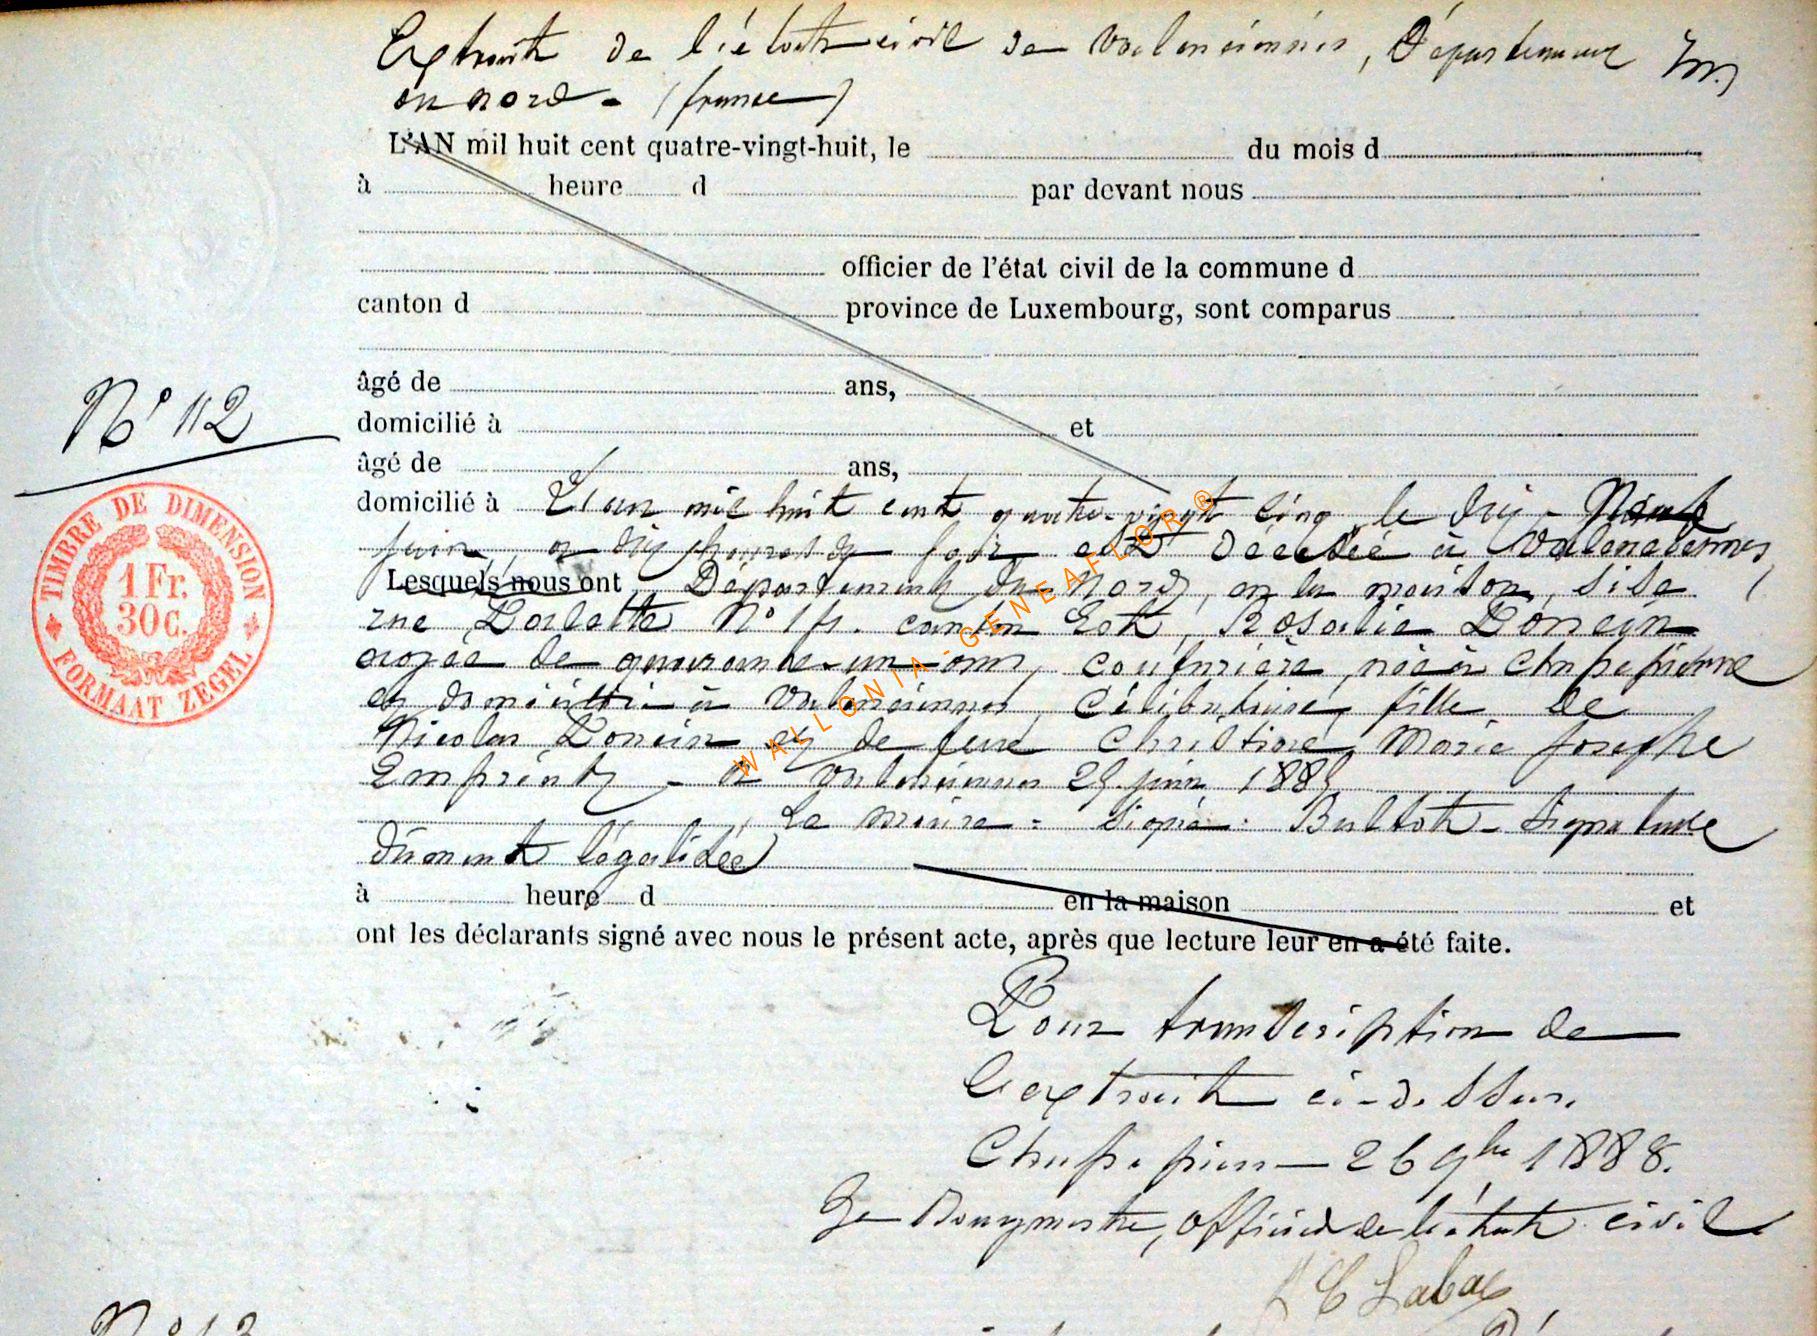 Extrait de l'état civil de Valenciennes, Département
du nord - (france)
L'AN mil huit cent quatre-vingt-huit, le du mois d
à heure d par devant nous
officier de l'état civil de la commune d
canton d province de Luxembourg, sont comparus
âgé de ans,
N° 112
domicilié à et
âgé de ans,
domicilié à L'an mil huit cent quatre-vingt cinq, le dix-Neuf
juin, à dix heures du soir est décédée à Valenciennes,
Lesquels nous ont Département du Nord, en la maison, sise
rue N° canton Est, Rosalie Poncin
agée de quarante-un-ans, couturière, née à Chapepierre
et domiciliée à Valenciennes, Célibataire, fille de
Nicolas Poncin et de feue Christine Marie Josephe
à Valenciennes 25 juin 1885
Le maire = Signé: Bultot - Signature
dûment légalisée
à heure d en la maison et
ont les déclarants signé avec nous le présent acte, après que lecture leur en a été faite.
TIMBRE DE DIMENSION
1 Fr.
30 C.
FORMAAT ZEGEL
WALLONIA-GENEAFLOR®
Pour transcription de
l'extrait ci-dessus.
26 9bre 1888.
Le Bourgmestre, officier de l'état civil